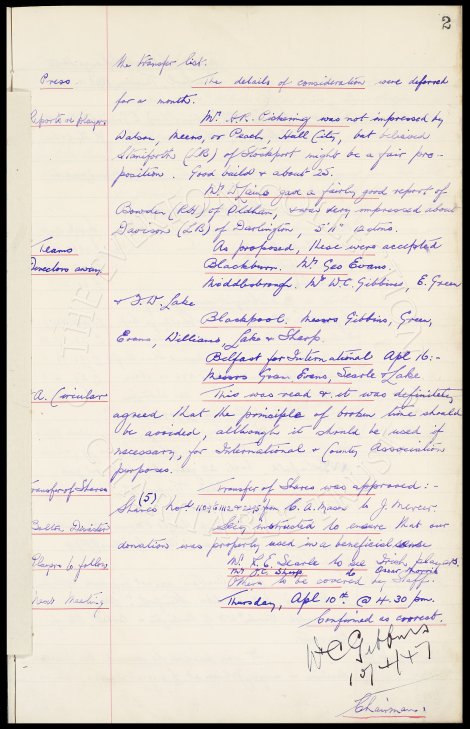 2
the transfer list.
Press The details of consideration were deferred
for a month.
Reports re players Mr. H.R. Pickering was not impressed by
Watson, Meens, or Peach, Hull City, but believed
Staniforth (LB) of Stockport might be a fair pro-
position. Good build & about 25.
Mr. gave a fairly good report of
Bowden (RH) of Oldham, & was very impressed about
Davison (LB) of Darlington, 5' 11" 12 stns.
Teams As proposed, these were accepted
Directors away. Blackburn. Mr Geo Evans.
Middlesbrough. Mr W.C. Gibbins, E. Green
& F.W. Lake
Blackpool. Messrs Gibbins, Green,
Evans, Williams, Lake & Sharp.
Belfast for International Apl 16:-
Messrs Evans, Searle & Lake
F.A. Circular This was read & it was definitely
agreed that the principle of broken time should
be avoided, although it should be used if
necessary, for International & County Association
purposes.
Transfer of Shares Transfer of Shares was approved:-
(5)
Shares Nos from C.A. Mason to J. Mercer.
Bolton Disaster Secy instructed to ensure that our
donation was properly used in a beneficial sense
Players to follow Mr. R.E. Searle to see Irish players.
Mr. J.C. Sharp to
Others to be covered by Staff.
Next Meeting Thursday, Apl 10th @ 4.30 pm.
Confirmed as correct.
W C Gibbins
Chairman.